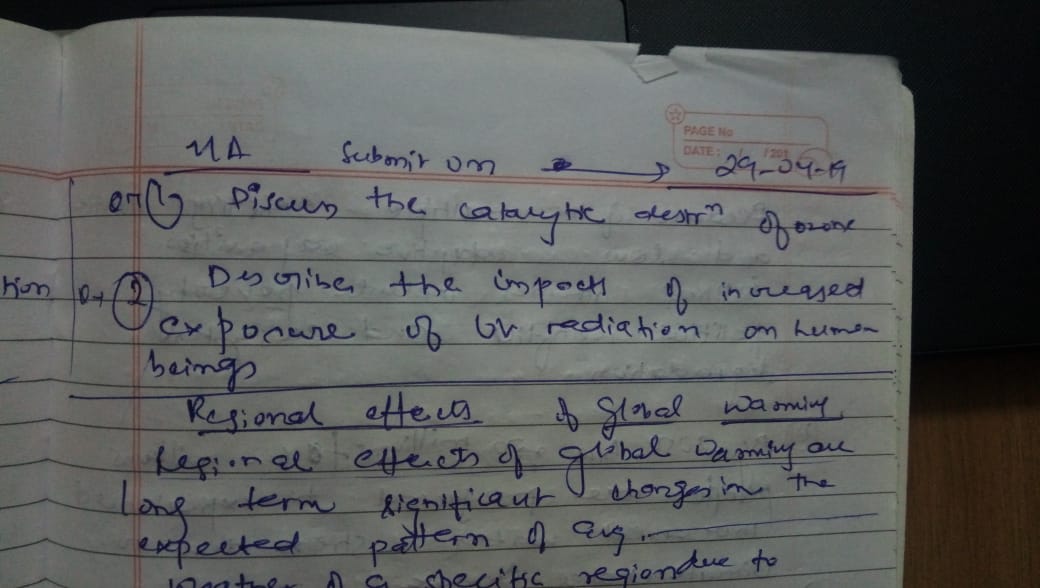 PAGE No
DATE: /201
HA Submit on → 29-04-19
Q→ 1 Discuss the catalytic destrⁿ of ozone
tion Q→ 2 Describe the impacts of increased
exposure of UV radiation on human
beings
Regional effects of global warming
Regional effects of global warming are
long term significant changes in the
expected pattern of avg.
weather of a specific region due to